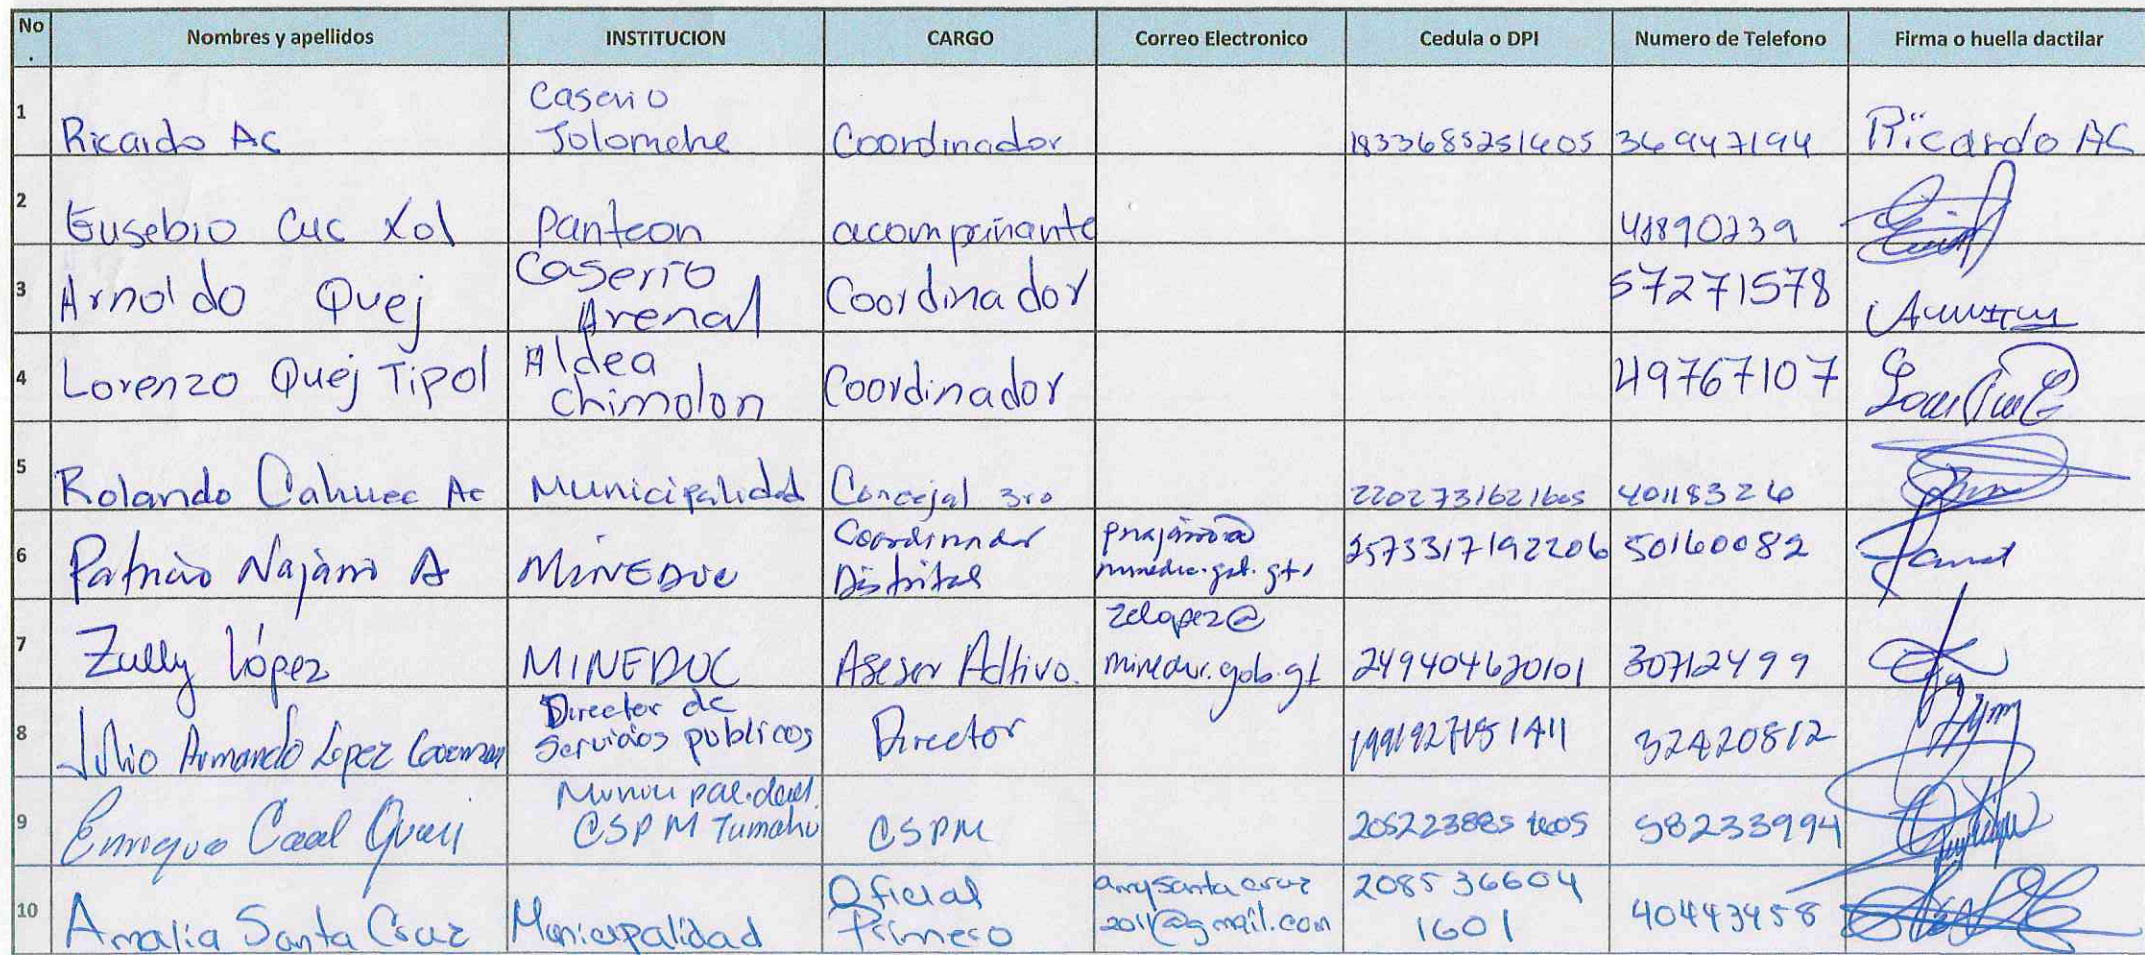 No. Nombres y apellidos INSTITUCION CARGO Correo Electronico Cedula o DPI Numero de Telefono Firma o huella dactilar
1 Ricardo Ac Caserio Jolomche Coordinador 1833685251605 36947194 Ricardo AC
2 Eusebio Cuc Xol Panteon acompañante 41890239
3 Arnoldo Quej Caserio Arenal Coordinador 57271578
4 Lorenzo Quej Tipol Aldea Chimolon Coordinador 49767107
5 Rolando Cahuec Ac Municipalidad Concejal 3ro 2202731621605 40118326
6 Patricio Najarro A MINEDUC Coordinador Distrital 2573317192206 50160082
7 Zully López MINEDUC Asesor Adtivo. zelopez@ mineduc.gob.gt 249404620101 30712499
8 Julio Armando Lopez Director de Servicios publicos Director 32420812
9 Enrique Caal Municipalidad CSPM Tumahu CSPM 58233994
10 Amalia Santa Cruz Municipalidad Oficial Primero amysantacruz 2011@gmail.com 208536604 1601 40443458